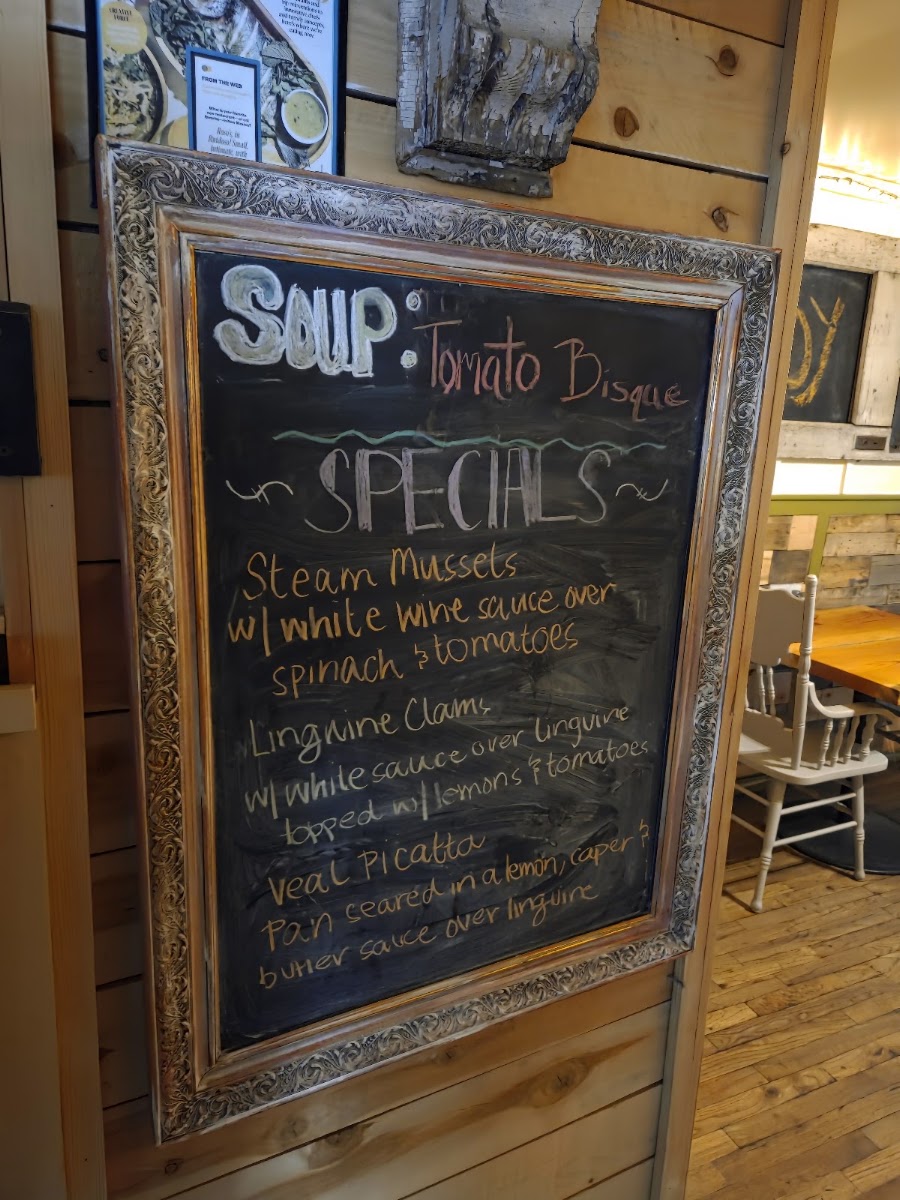 FROM THE WEB
SOUP: Tomato Bisque
SPECIALS
Steam Mussels
w/ white wine sauce over
spinach & tomatoes
Linguine Clams
w/ white sauce over linguine
topped w/ lemons & tomatoes
Veal Picatta
Pan seared in a lemon, caper &
butter sauce over linguine
DY